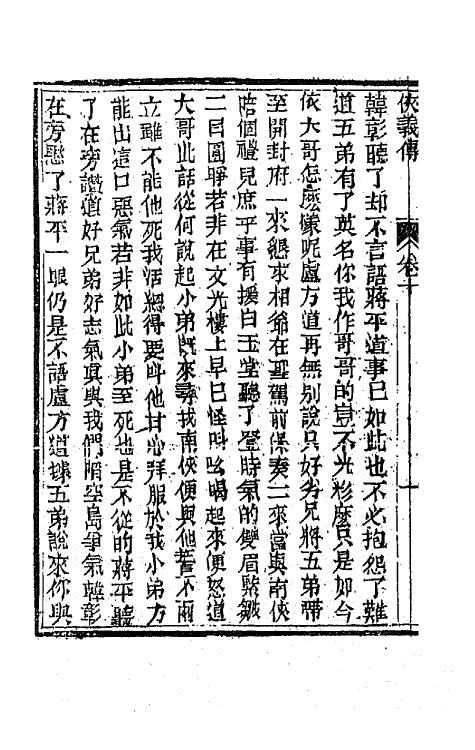 俠義傳
卷十
韓彰聽了却不言語蔣平道事已如此也不必抱怨了難
道五弟有了英名你我作哥哥的豈不光彩麼只是如今
依大哥怎麼樣呢盧方道再無別說只好劣兄將五弟帶
至開封府一來懇求相爺在聖駕前保奏二來當與南俠
陪個禮兒庶乎事有援白玉堂聽了登時氣的雙眉緊皺
二目圓睜若非在文光樓上早已怪叫吆喝起來便怒道
大哥此話從何說起小弟旣來尋找南俠便與他誓不兩
立雖不能他死我活總得要叫他甘心拜服於我小弟方
能出這口惡氣若非如此小弟至死也是不從的蔣平聽
了在旁讚道好兄弟好志氣眞與我們陷空島爭氣韓彰
在旁瞅了蔣平一眼仍是不語盧方道據五弟說來你與